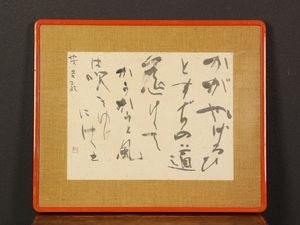 かがやける
とすぢの道
遥けくて
かうかうと風
は吹きゆき
にけり
茂吉歌